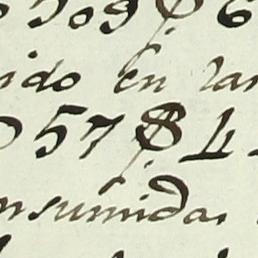 509 $ 6
ido en las
057 $ 4
nsumidas